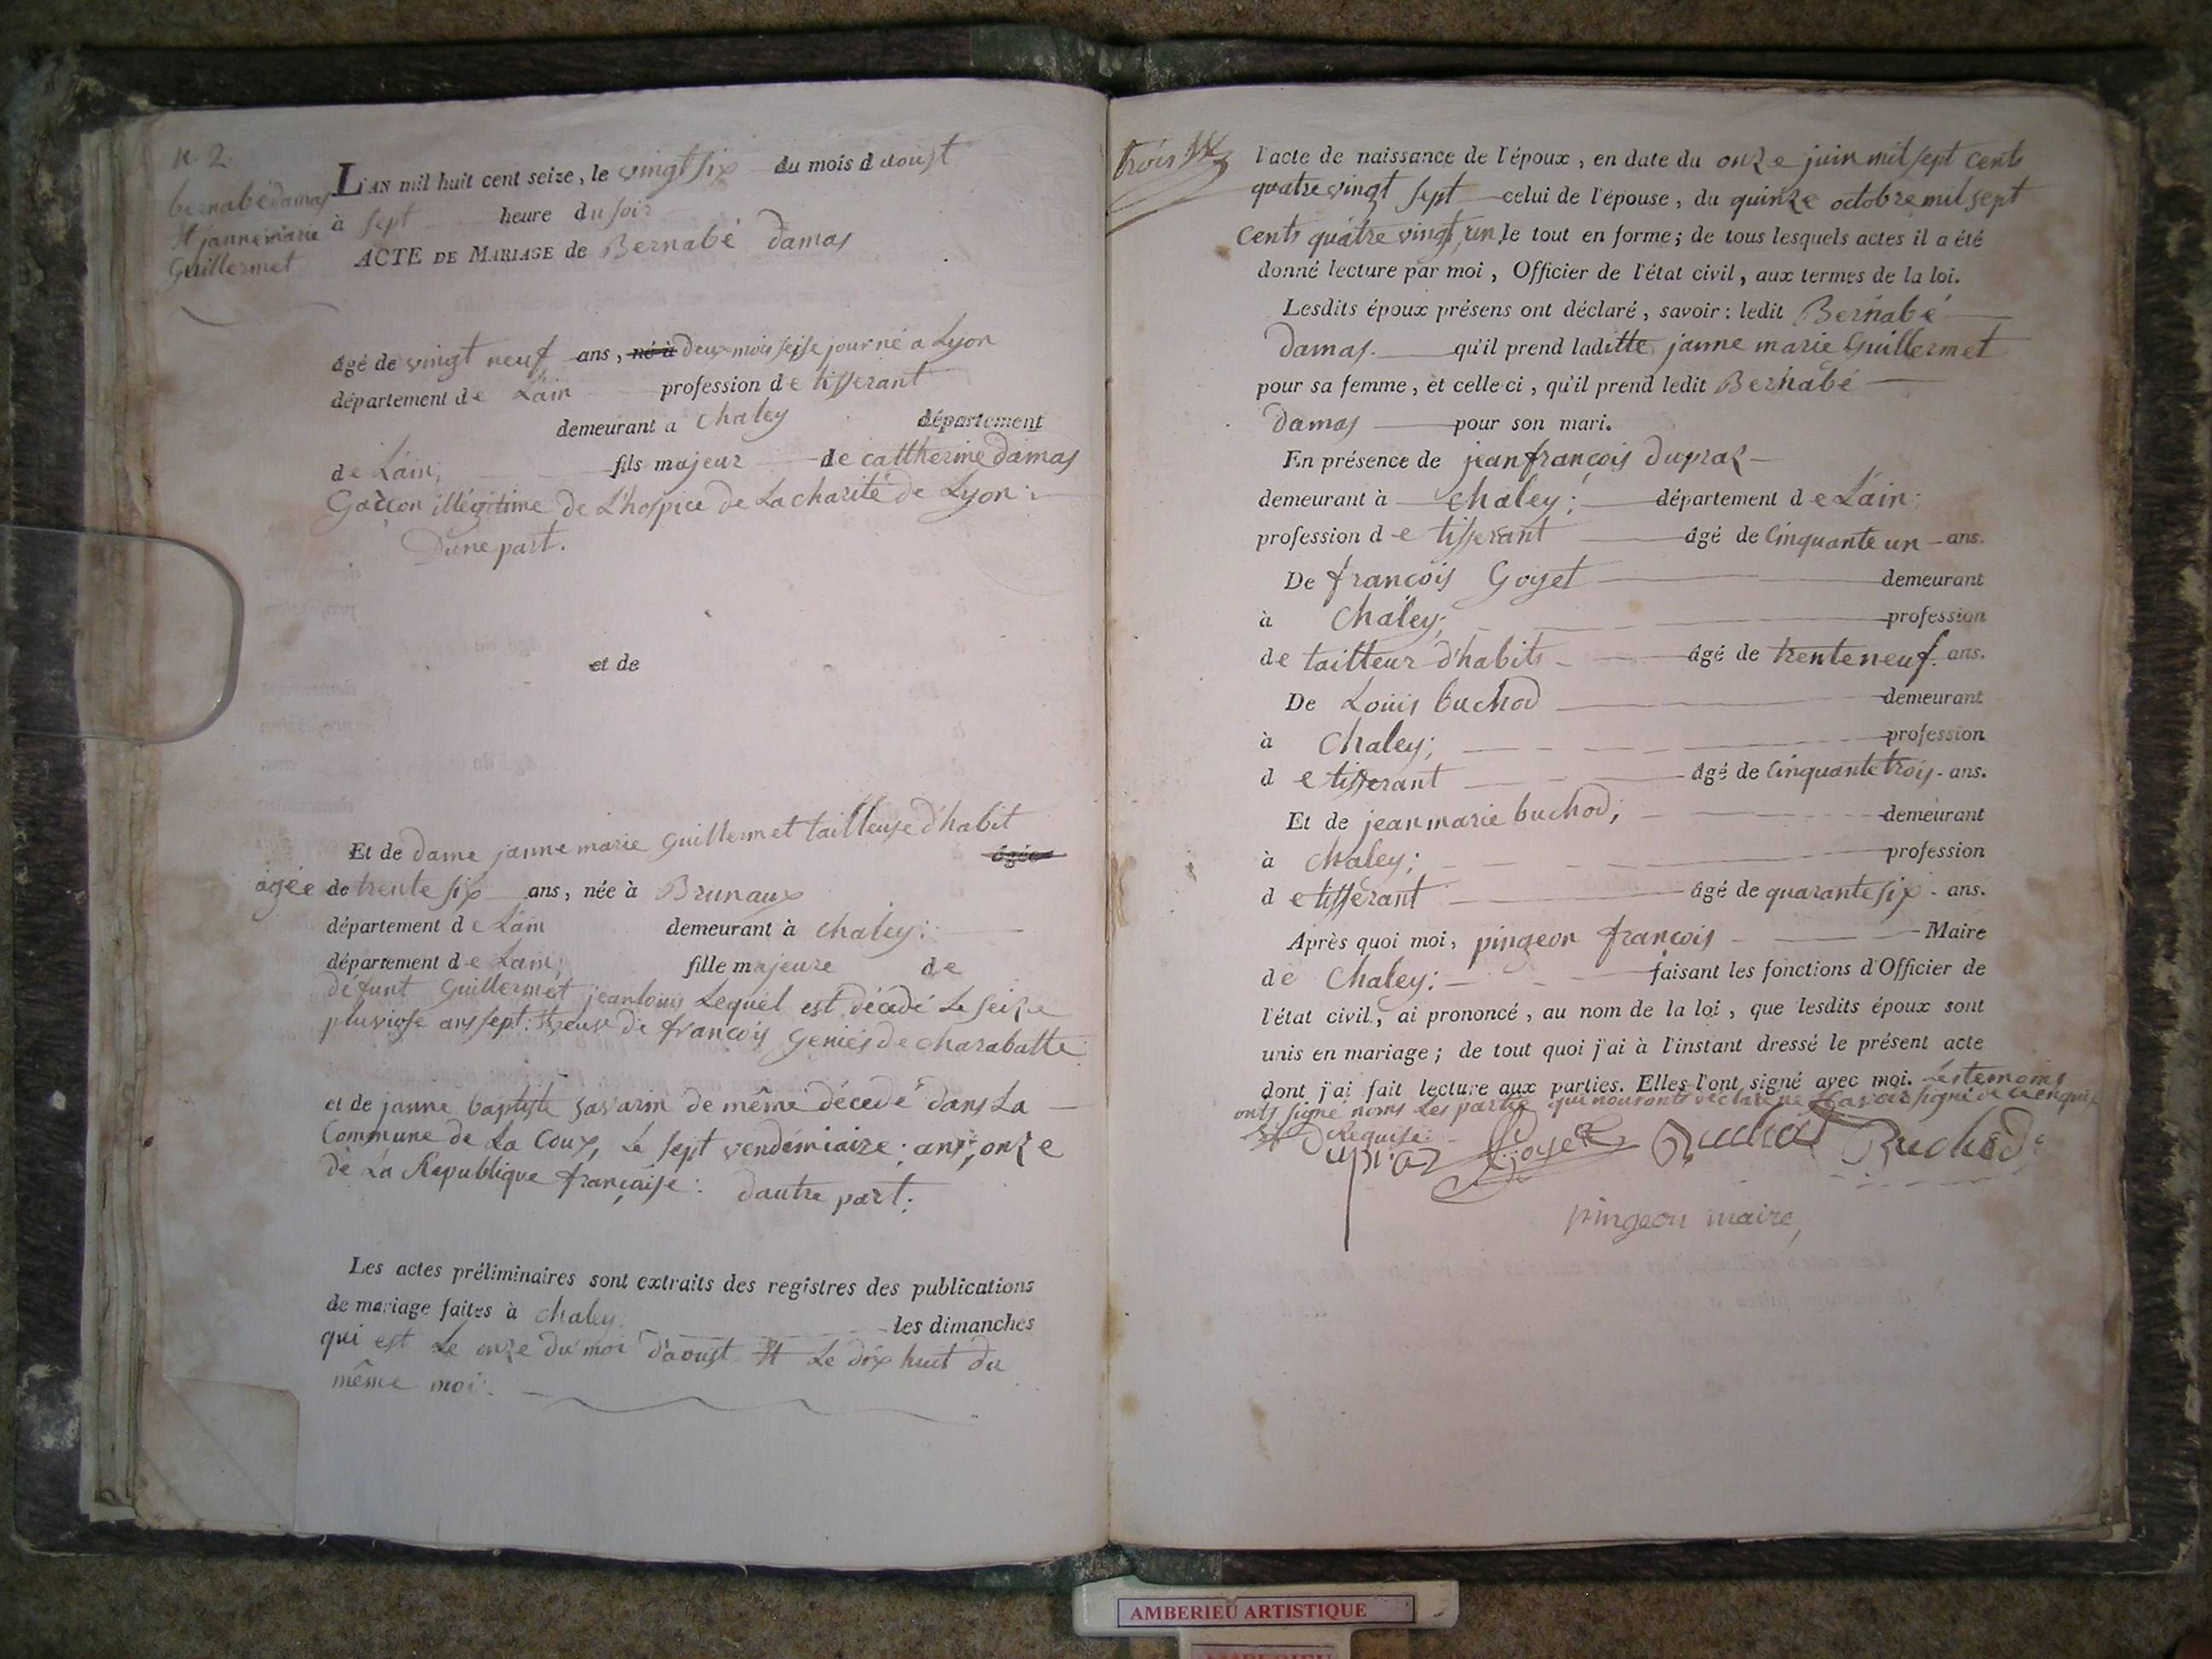 n. 2
bernabé damas
et jannemarie
Guillermet
L'AN mil huit cent seize, le vingt six du mois d aoust
à sept heure du soir
ACTE DE MARIAGE de Bernabé damas
âgé de vingt neuf ans, né à deux mois seise jour né a Lyon
département de Lain profession de tisserant
demeurant a chaley département
de Lain; fils majeur de cattherine damas
Garcon illégitime de L'hospice de La charité de Lyon
Dune part.
et de
Et de dame janne marie Guillermet tailleuse d'habit
âgée
agée de trente six ans, née à Brunaux
département de Lain demeurant à chaley:
département de Lain; fille majeure de
défunt Guillermet jeanlouis Lequel est décedé Le seize
pluviose ans sept: veuve de francois Genies de charabatte
et de janne baptiste savarin de même décedé dans La
Commune de La Coux, Le sept vendémiaire; ans; onze
de La Republique française: dautre part.
Les actes préliminaires sont extraits des registres des publications
de mariage faites à chaley. les dimanches
qui est Le onze du moi d'aoust et Le dix huit du
même moi.
trois
l'acte de naissance de l'époux, en date du onze juin mil sept cents
quatre vingt sept celui de l'épouse, du quinze octobre mil sept
Cents quatre vingt, un, le tout en forme; de tous lesquels actes il a été
donné lecture par moi, Officier de l'état civil, aux termes de la loi.
Lesdits époux présens ont déclaré, savoir: ledit Bernabé
damas. qu'il prend laditte janne marie Guillermet
pour sa femme, et celle ci, qu'il prend ledit Bernabé
damas pour son mari.
En présence de jean françois dupraz
demeurant à chaley; département de Lain;
profession de tisserant âgé de Cinquante un ans.
De françois Goyet demeurant
à Chaley; profession
de tailleur d'habits âgé de trente neuf. ans.
De Louis buchod demeurant
à Chaley; profession
de tisserant âgé de Cinquante trois ans.
Et de jean marie buchod; demeurant
à chaley; profession
de tisserant âgé de quarante six ans.
Après quoi moi, pingeon françois Maire
de Chaley: faisant les fonctions d'Officier de
l'état civil, ai prononcé, au nom de la loi, que lesdits époux sont
unis en mariage; de tout quoi j'ai à l'instant dressé le présent acte
dont j'ai fait lecture aux parties. Elles l'ont signé avec moi. Les temoins
onts signe noms Les partie qui nous onts declaré ne savoir signé de ce enquis
et Requise:
Dupraz Goyet Buchod Buchod
pingeon maire,
AMBERIEU ARTISTIQUE